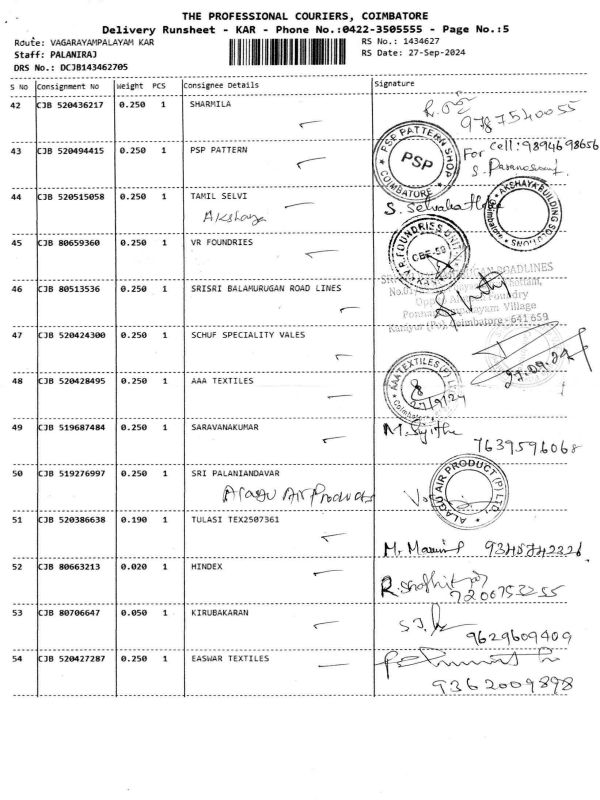 THE PROFESSIONAL COURIERS, COIMBATORE
Delivery Runsheet - KAR - Phone No.:0422-3505555 - Page No.:5
Route: VAGARAYAMPALAYAM KAR
RS No.: 1434627
Staff: PALANIRAJ
RS Date: 27-Sep-2024
DRS No.: DCJB143462705
S No Consignment No Weight PCS Consignee Details Signature
42 CJB 520436217 0.250 1 SHARMILA
9787540055
43 CJB 520494415 0.250 1 PSP PATTERN
PSP PATTERN SHOP
PSP
COIMBATORE
For Cell: 9894698656
44 CJB 520515058 0.250 1 TAMIL SELVI
Akshaya
AKSHAYA BUILDING SOLUTIONS
Coimbatore
45 CJB 80659360 0.250 1 VR FOUNDRIES
V.R. FOUNDRISS UNIT
CBE-59
46 CJB 80513536 0.250 1 SRISRI BALAMURUGAN ROAD LINES
ROADLINES
Foundry
Village
Coimbatore - 641 659
47 CJB 520424300 0.250 1 SCHUF SPECIALITY VALES
27.09.24
48 CJB 520428495 0.250 1 AAA TEXTILES
AAA TEXTILES (P) LTD
27/9/24
Coimbatore
49 CJB 519687484 0.250 1 SARAVANAKUMAR
7639596068
50 CJB 519276997 0.250 1 SRI PALANIANDAVAR
Alagu Air Products
ALAGU AIR PRODUCT (P) LTD.
51 CJB 520386638 0.190 1 TULASI TEX2507361
52 CJB 80663213 0.020 1 HINDEX
7200753255
53 CJB 80706647 0.050 1 KIRUBAKARAN
9629609409
54 CJB 520427287 0.250 1 EASWAR TEXTILES
9362009898